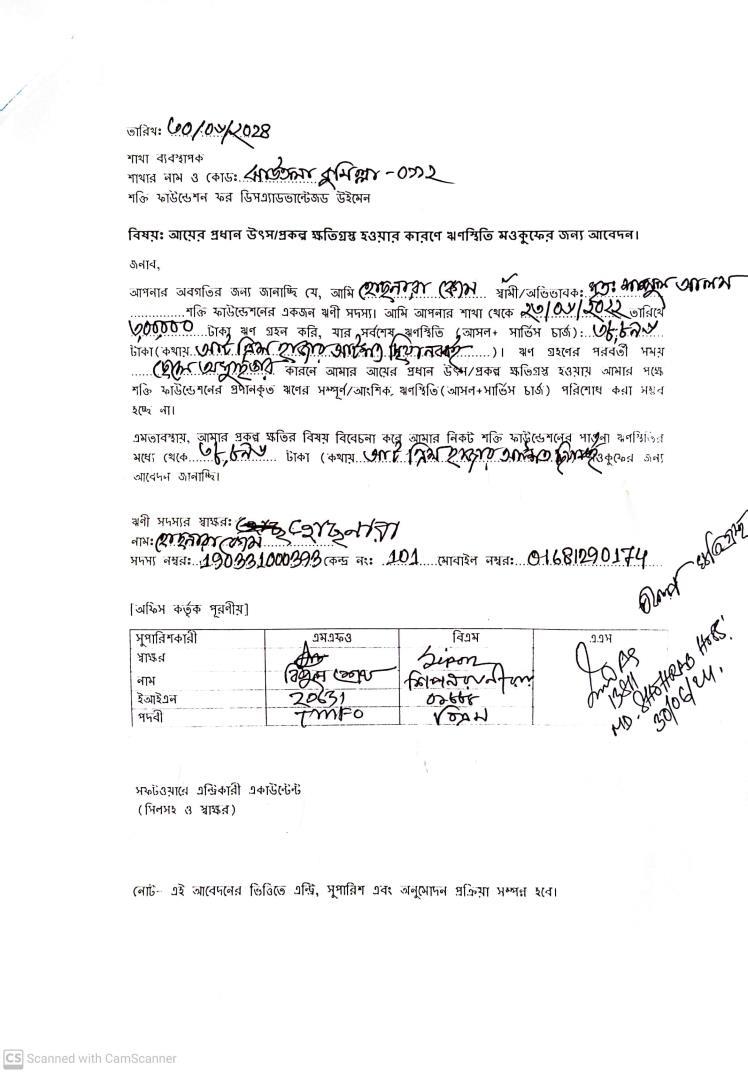 তারিখ: ৩০/০৬/২০২৪
শাখা ব্যবস্থাপক
শাখার নাম ও কোড: কুমিল্লা - ০৩১২
শক্তি ফাউন্ডেশন ফর ডিসএ্যাডভান্টেজড উইমেন
বিষয়: আয়ের প্রধান উৎস/প্রকল্প ক্ষতিগ্রস্থ হওয়ার কারণে ঋণস্থিতি মওকুফের জন্য আবেদন।
জনাব,
আপনার অবগতির জন্য জানাচ্ছি যে, আমি হোছনারা বেগম স্বামী/অভিভাবক: মৃত: আলম
শক্তি ফাউন্ডেশনের একজন ঋণী সদস্য। আমি আপনার শাখা থেকে ২৩/০৬/২০২২ তারিখে
টাকা ঋণ গ্রহন করি, যার সর্বশেষ ঋণস্থিতি (আসল+ সার্ভিস চার্জ):
টাকা (কথায় )। ঋণ গ্রহণের পরবর্তী সময়
কারনে আমার আয়ের প্রধান উৎস/প্রকল্প ক্ষতিগ্রস্থ হওয়ায় আমার পক্ষে
শক্তি ফাউন্ডেশনের প্রদানকৃত ঋণের সম্পূর্ণ/আংশিক ঋণস্থিতি (আসল+সার্ভিস চার্জ) পরিশোধ করা সম্ভব
হচ্ছে না।
এমতাবস্থায়, আমার প্রকল্প ক্ষতির বিষয় বিবেচনা করে আমার নিকট শক্তি ফাউন্ডেশনের পাওনা ঋণস্থিতির
মধ্যে থেকে টাকা (কথায় মওকুফের জন্য
আবেদন জানাচ্ছি।
ঋণী সদস্যর স্বাক্ষর: হোছনারা
নাম: হোছনারা বেগম
সদস্য নম্বর: 190331000393 কেন্দ্র নং: 101 মোবাইল নম্বর: 01681290174
[অফিস কর্তৃক পূরণীয়]
সুপারিশকারী এমএফও বিএম এএম
স্বাক্ষর Sipon
নাম
ইআইএন 20631
পদবী TMFO
13811
MD. SHOHRAB HOS:
30/06/24.
সফটওয়ারে এন্ট্রিকারী একাউন্টেন্ট
(সিলসহ ও স্বাক্ষর)
নোট- এই আবেদনের ভিত্তিতে এন্ট্রি, সুপারিশ এবং অনুমোদন প্রক্রিয়া সম্পন্ন হবে।
CS Scanned with CamScanner